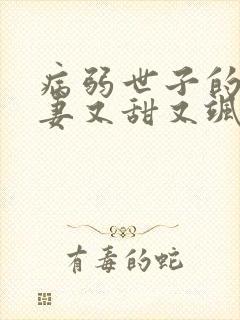 病弱世子的
妻又甜又飒
有毒的蛇